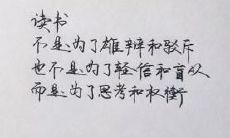 读书
不是为了雄辩和驳斥
也不是为了轻信和盲从
而是为了思考和权衡